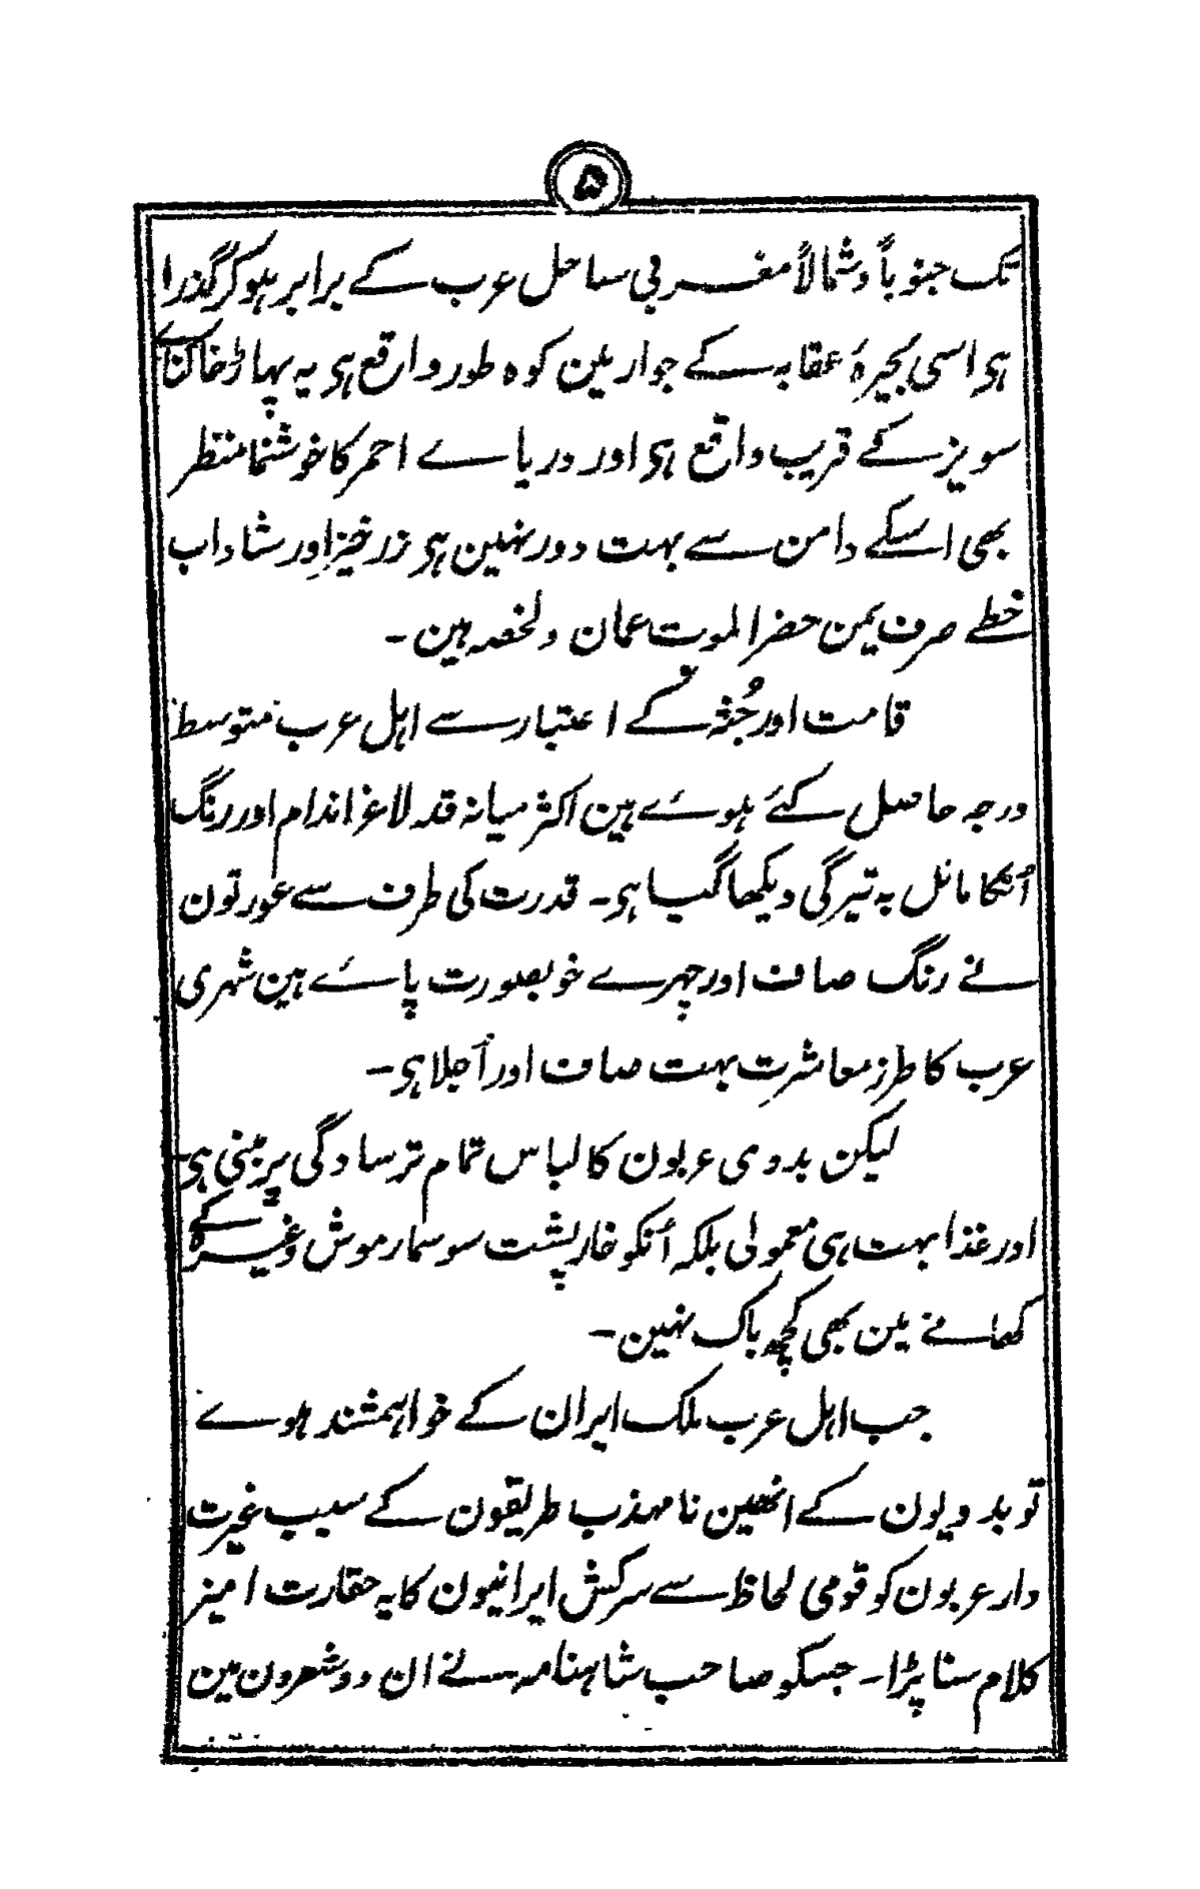 ۵
تک جنوباً وشمالاً مغربی ساحل عرب کے برابر ہوکر گذرا
ہی اسی بحیرۂ عقابہ کے جوار مین کوہ طور واقع ہی یہ پہاڑ خاکناے
سویز کے قریب واقع ہی اور دریاے احمر کا خوشنما منظر
بھی اسکے دامن سے بہت دور نہین ہی زرخیز اور شاداب
خطے صرف یمن حضر الموت عمان ولخصہ ہین -
قامت اور جُثہ کے اعتبار سے اہل عرب متوسط
درجہ حاصل کئے ہوۓ ہین اکثر میانہ قد لاغر اندام اور رنگ
اُنکا مائل بہ تیرگی دیکھا گیا ہی - قدرت کی طرف سے عورتون
نے رنگ صاف اور چہرے خوبصورت پاۓ ہین شہری
عرب کا طرز معاشرت بہت صاف اور اُجلا ہی -
لیکن بدوی عربون کا لباس تمام تر سادگی پر مبنی ہی
اور غذا بہت ہی معمولی بلکہ اُنکو خارپشت سوسمار موش وغیرہ کے
کھانے مین بھی کچھ باک نہین -
جب اہل عرب ملک ایران کے خواہشمند ہوے
تو بدویون کے انھین نامہذب طریقون کے سبب غیرت
دار عربون کو قومی لحاظ سے سرکش ایرانیون کا یہ حقارت امیز
کلام سننا پڑا - جسکو صاحب شاہنامہ نے ان دو شعرون مین